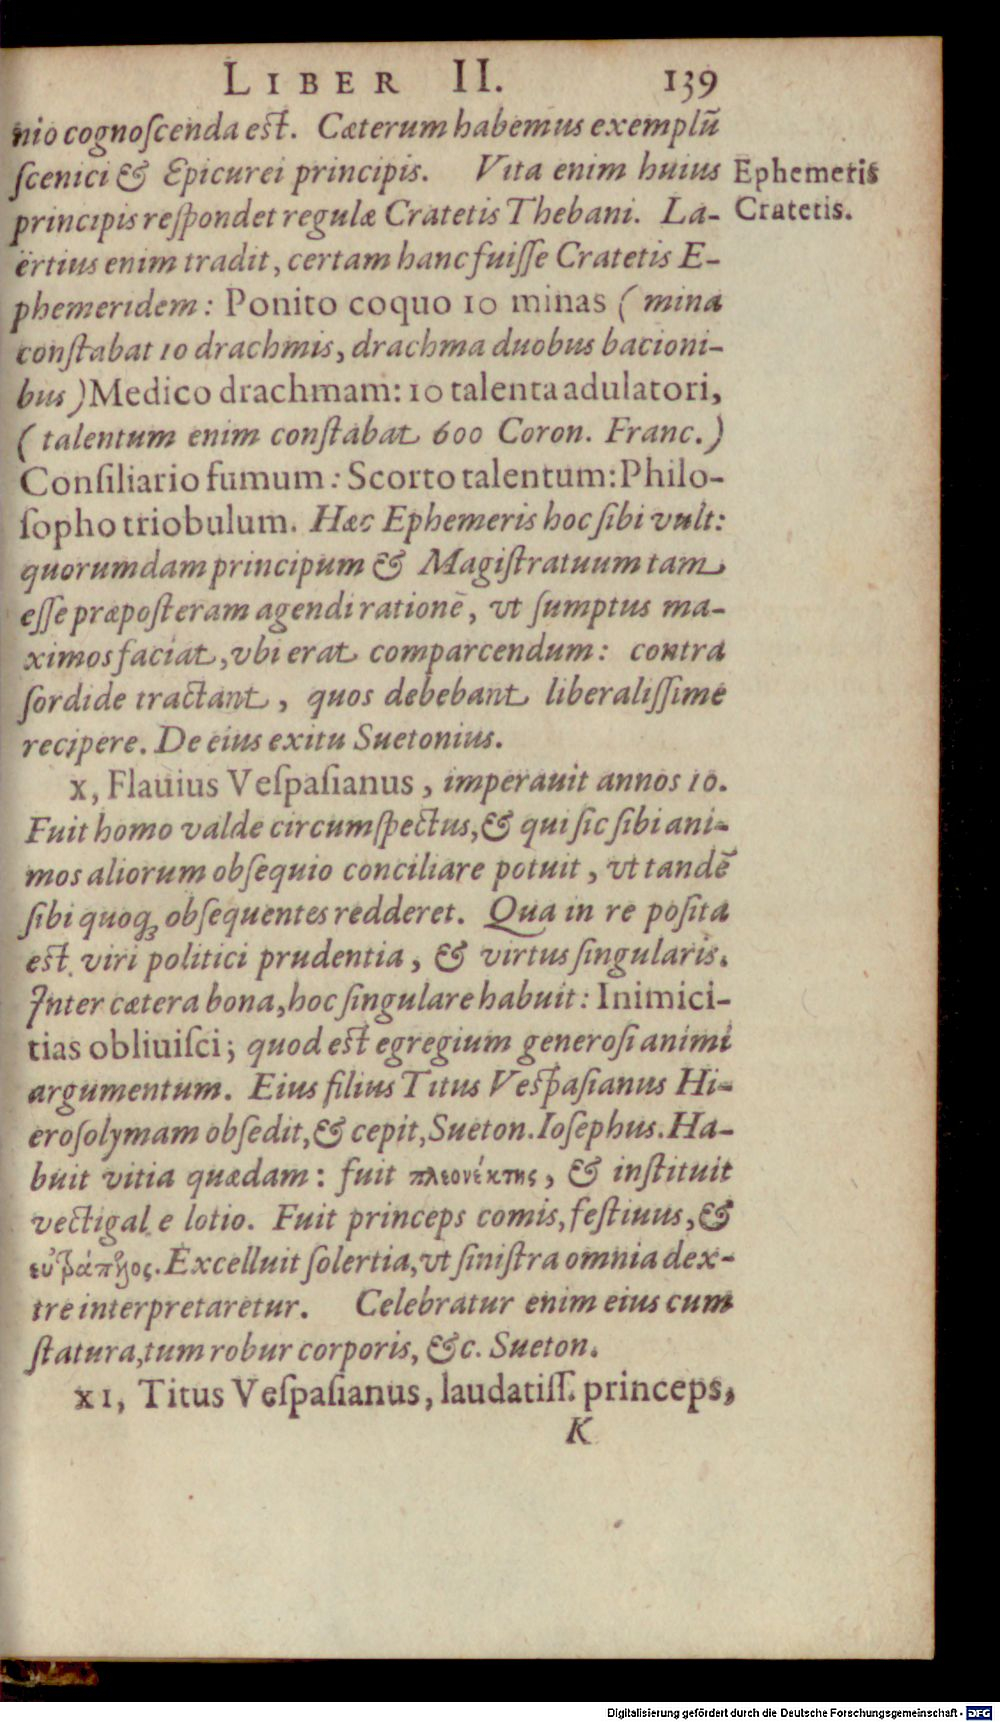 LIBER II. 139
nio cognoſcenda est. Cæterum habemus exemplũ
ſcenici & Epicurei principis. Vita enim huius
Ephemeris
principis reſpondet regulæ Cratetis Thebani. La-
Cratetis.
ërtius enim tradit, certam hanc fuiſſe Cratetis E-
phemeridem: Ponito coquo 10 minas (mina
conſtabat 10 drachmis, drachma duobus bacioni-
bus) Medico drachmam: 10 talenta adulatori,
(talentum enim conſtabat 600 Coron. Franc.)
Conſiliario fumum: Scorto talentum: Philo-
ſopho triobulum. Hæc Ephemeris hoc ſibi vult:
quorumdam principum & Magiſtratuum tam
eſſe præpoſteram agendi rationē, vt ſumptus ma-
ximos faciat, vbi erat comparcendum: contra
ſordide tractant, quos debebant liberaliſſime
recipere. De eius exitu Suetonius.
x, Flauius Veſpaſianus, imperauit annos 10.
Fuit homo valde circumſpectus, & qui ſic ſibi ani-
mos aliorum obſequio conciliare potuit, vt tandē
ſibi quoqꝫ obſequentes redderet. Qua in re poſita
est viri politici prudentia, & virtus ſingularis.
Inter cætera bona, hoc ſingulare habuit: Inimici-
tias obliuiſci; quod est egregium generoſi animi
argumentum. Eius filius Titus Veſpaſianus Hi-
eroſolymam obſedit, & cepit, Sueton. Ioſephus. Ha-
buit vitia quædam: fuit πλεονέκτης, & inſtituit
vectigal e lotio. Fuit princeps comis, feſtiuus, &
εὐτράπελος. Excelluit ſolertia, vt ſiniſtra omnia dex-
tre interpretaretur. Celebratur enim eius cum
ſtatura, tum robur corporis, &c. Sueton.
xı, Titus Veſpaſianus, laudatiſſ. princeps,
K
Digitalisierung gefördert durch die Deutsche Forschungsgemeinschaft - DFG